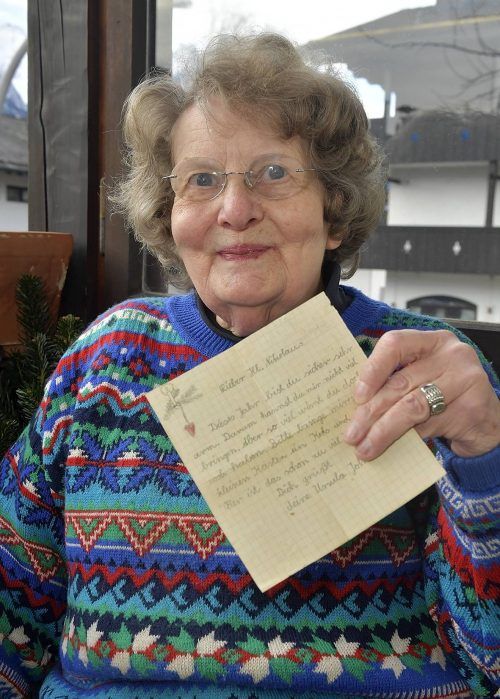 Lieber Hl. Nikolaus.
Dieses Jahr bist du sicher sehr
arm. Darum kannst du mir nicht viel
bringen. Aber so viel wirst du doch
noch haben. Bitte bringe mir
kleinen Kasten
ist das schon zu viel
Dich grüßt
deine Ursula